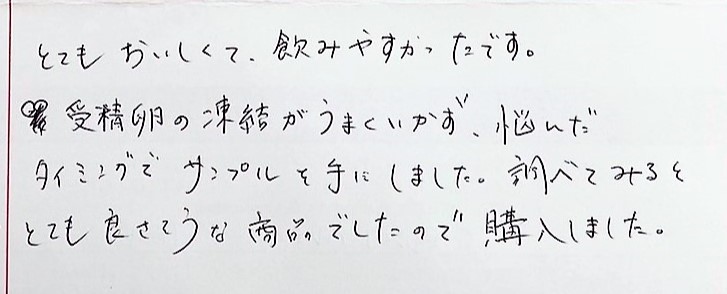 とてもおいしくて、飲みやすかったです。
受精卵の凍結がうまくいかず、悩んだ
タイミングでサンプルを手にしました。調べてみると
とても良さそうな商品でしたので購入しました。